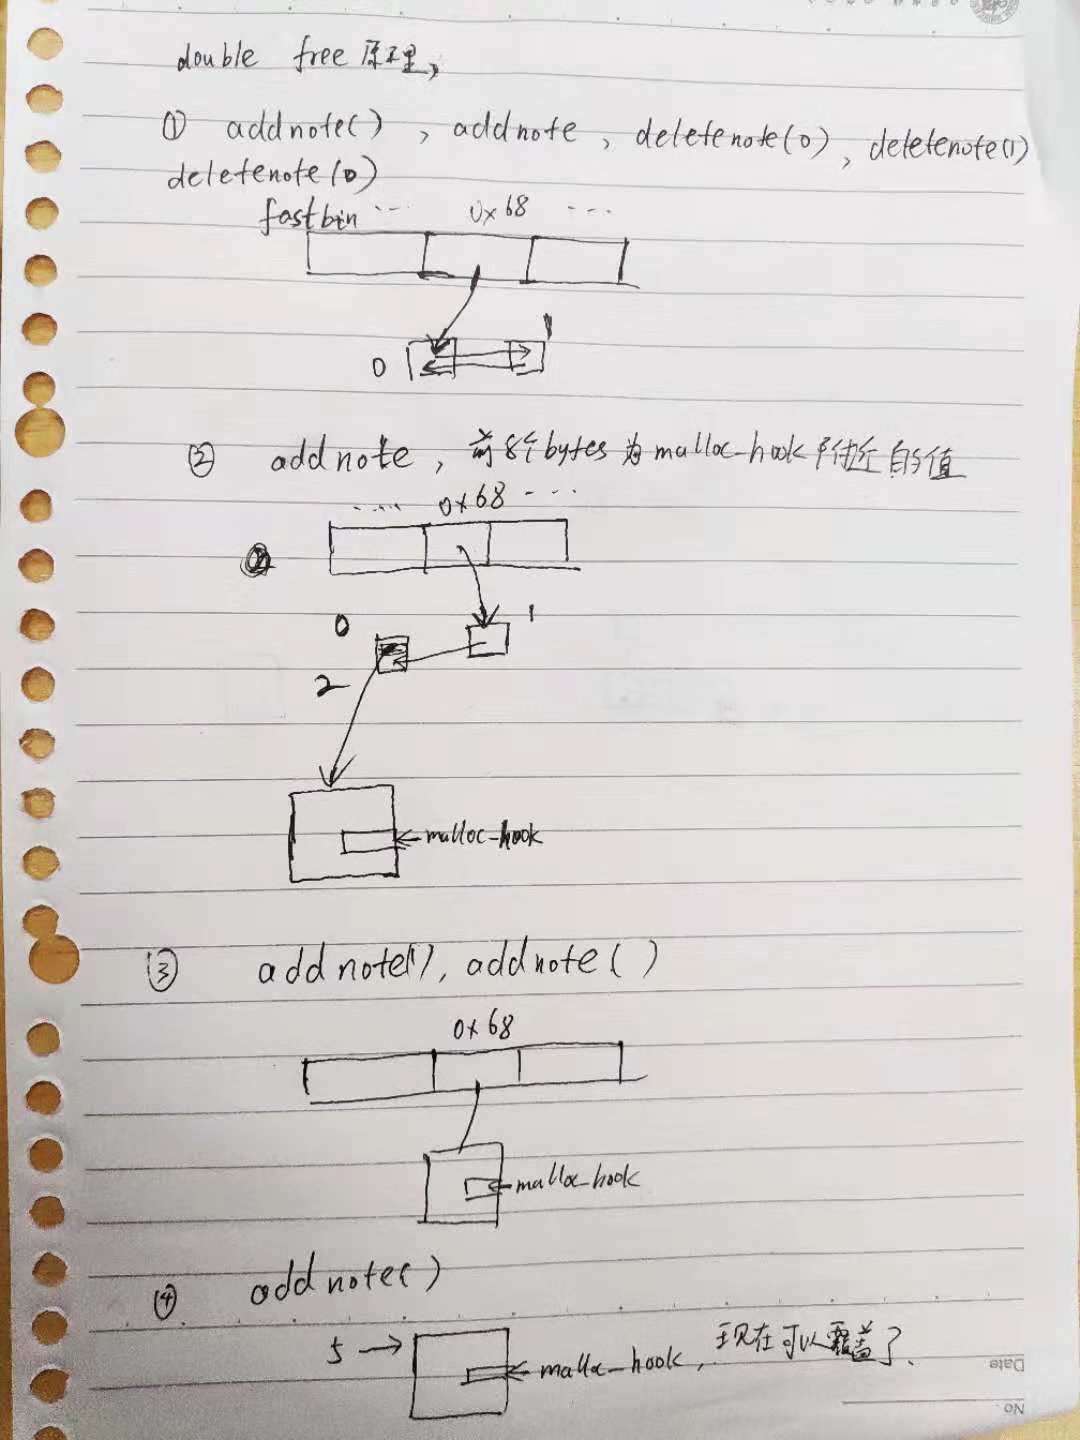 double free 原理,
① addnote() , addnote , deletenote(0) , deletenote(1)
deletenote(0)
fastbin ... 0x68 ...
0 1
② addnote , 前8个bytes 为 malloc-hook 附近的值
.... 0x68 ....
0 1
2
malloc-hook
③ addnote(), addnote()
0x68
malloc-hook
④ addnote()
5 malloc-hook, 现在可以覆盖了.
Date
No.